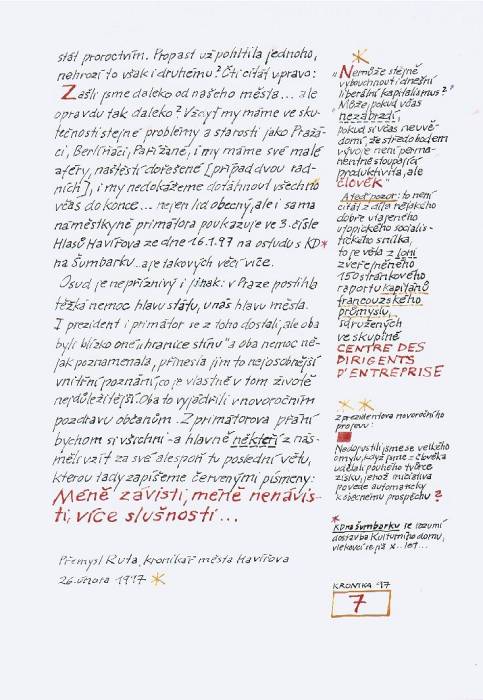 stát proroctvím. Propast už pohltila jednoho,
nehrozí to však i druhému? Čti citát vpravo:
Zašli jsme daleko od našeho města... ale
opravdu tak daleko? Vždyť my máme ve sku-
tečnosti stejné problémy a starosti jako Praža-
ci, Berlíňáci, Pařížané, i my máme své malé
aféry, naštěstí dořešené [případ dvou rad-
ních], i my nedokážeme dotáhnout všechno
včas do konce... nejen lid obecný, ale i sama
náměstkyně primátora poukazuje ve 3. čísle
Hlasů Havířova ze dne 16.1.97 na ostudu s KD*
na Šumbarku..ale takových věcí více.
Osud je nepříznivý i jinak: v Praze postihla
těžká nemoc hlavu státu, u nás hlavu města.
I prezident i primátor se z toho dostali, ale oba
byli blízko one „hranice stínu" a oba nemoc ně-
jak poznamenala, přinesla jim to nejosobnější
vnitřní poznání, co je vlastně v tom životě
nejdůležitější. Oba to vyjádřili v novoročním
pozdravu občanům. Z primátorova přání
bychom si všichni - a hlavně někteří z nás -
měli vzít za své alespoň tu poslední větu,
kterou tady zapíšeme červenými písmeny:
Méně závisti, méně nenávis-
ti, více slušnosti...
Přemysl Kuta, kronikář města Havířova
26. února 1997
„Nemůže stejně
vybouchnout i dnešní
liberální kapitalismus?"
„Může, pokud včas
nezabrzdí,
pokud si včas neuvě-
domí, že středobodem
vývoje není perma-
nentně stoupající
produktivita, ale
ČLOVĚK"
A teď pozor: to není
citát z díla nějakého
dobře utajeného
utopického socialis-
tického snílka,
to je věta z loni
zveřejněného
150 stránkového
raportu kapitánů
francouzského
průmyslu,
sdružených
ve skupině
CENTRE DES
DIRIGENTS
D'ENTREPRISE
Z prezidentova novoročního
projevu:
Nedopustili jsme se velkého
omylu, když jsme z člověka
udělali pouhého tvůrce
zisku, jehož iniciativa
povede automaticky
k obecnému prospěchu?
* KD na Šumbarku se rozumí
dostavba Kulturního domu,
vlekoucí se již x.. let...
KRONIKA '97
7